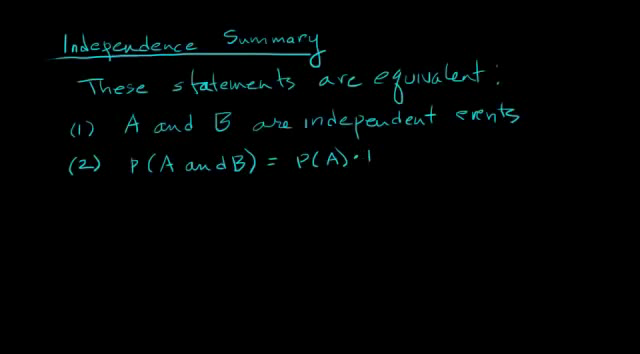 Independence Summary
These statements are equivalent:
(1) A and B are independent events
(2) P(A and B) = P(A) · I